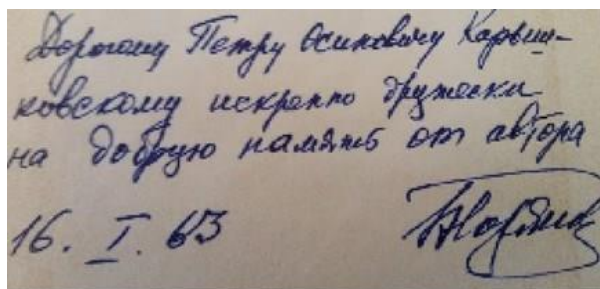 Дорогому Петру Осиповичу Карыш-
ковскому искренно дружески
на добрую память от автора
16. I. 63